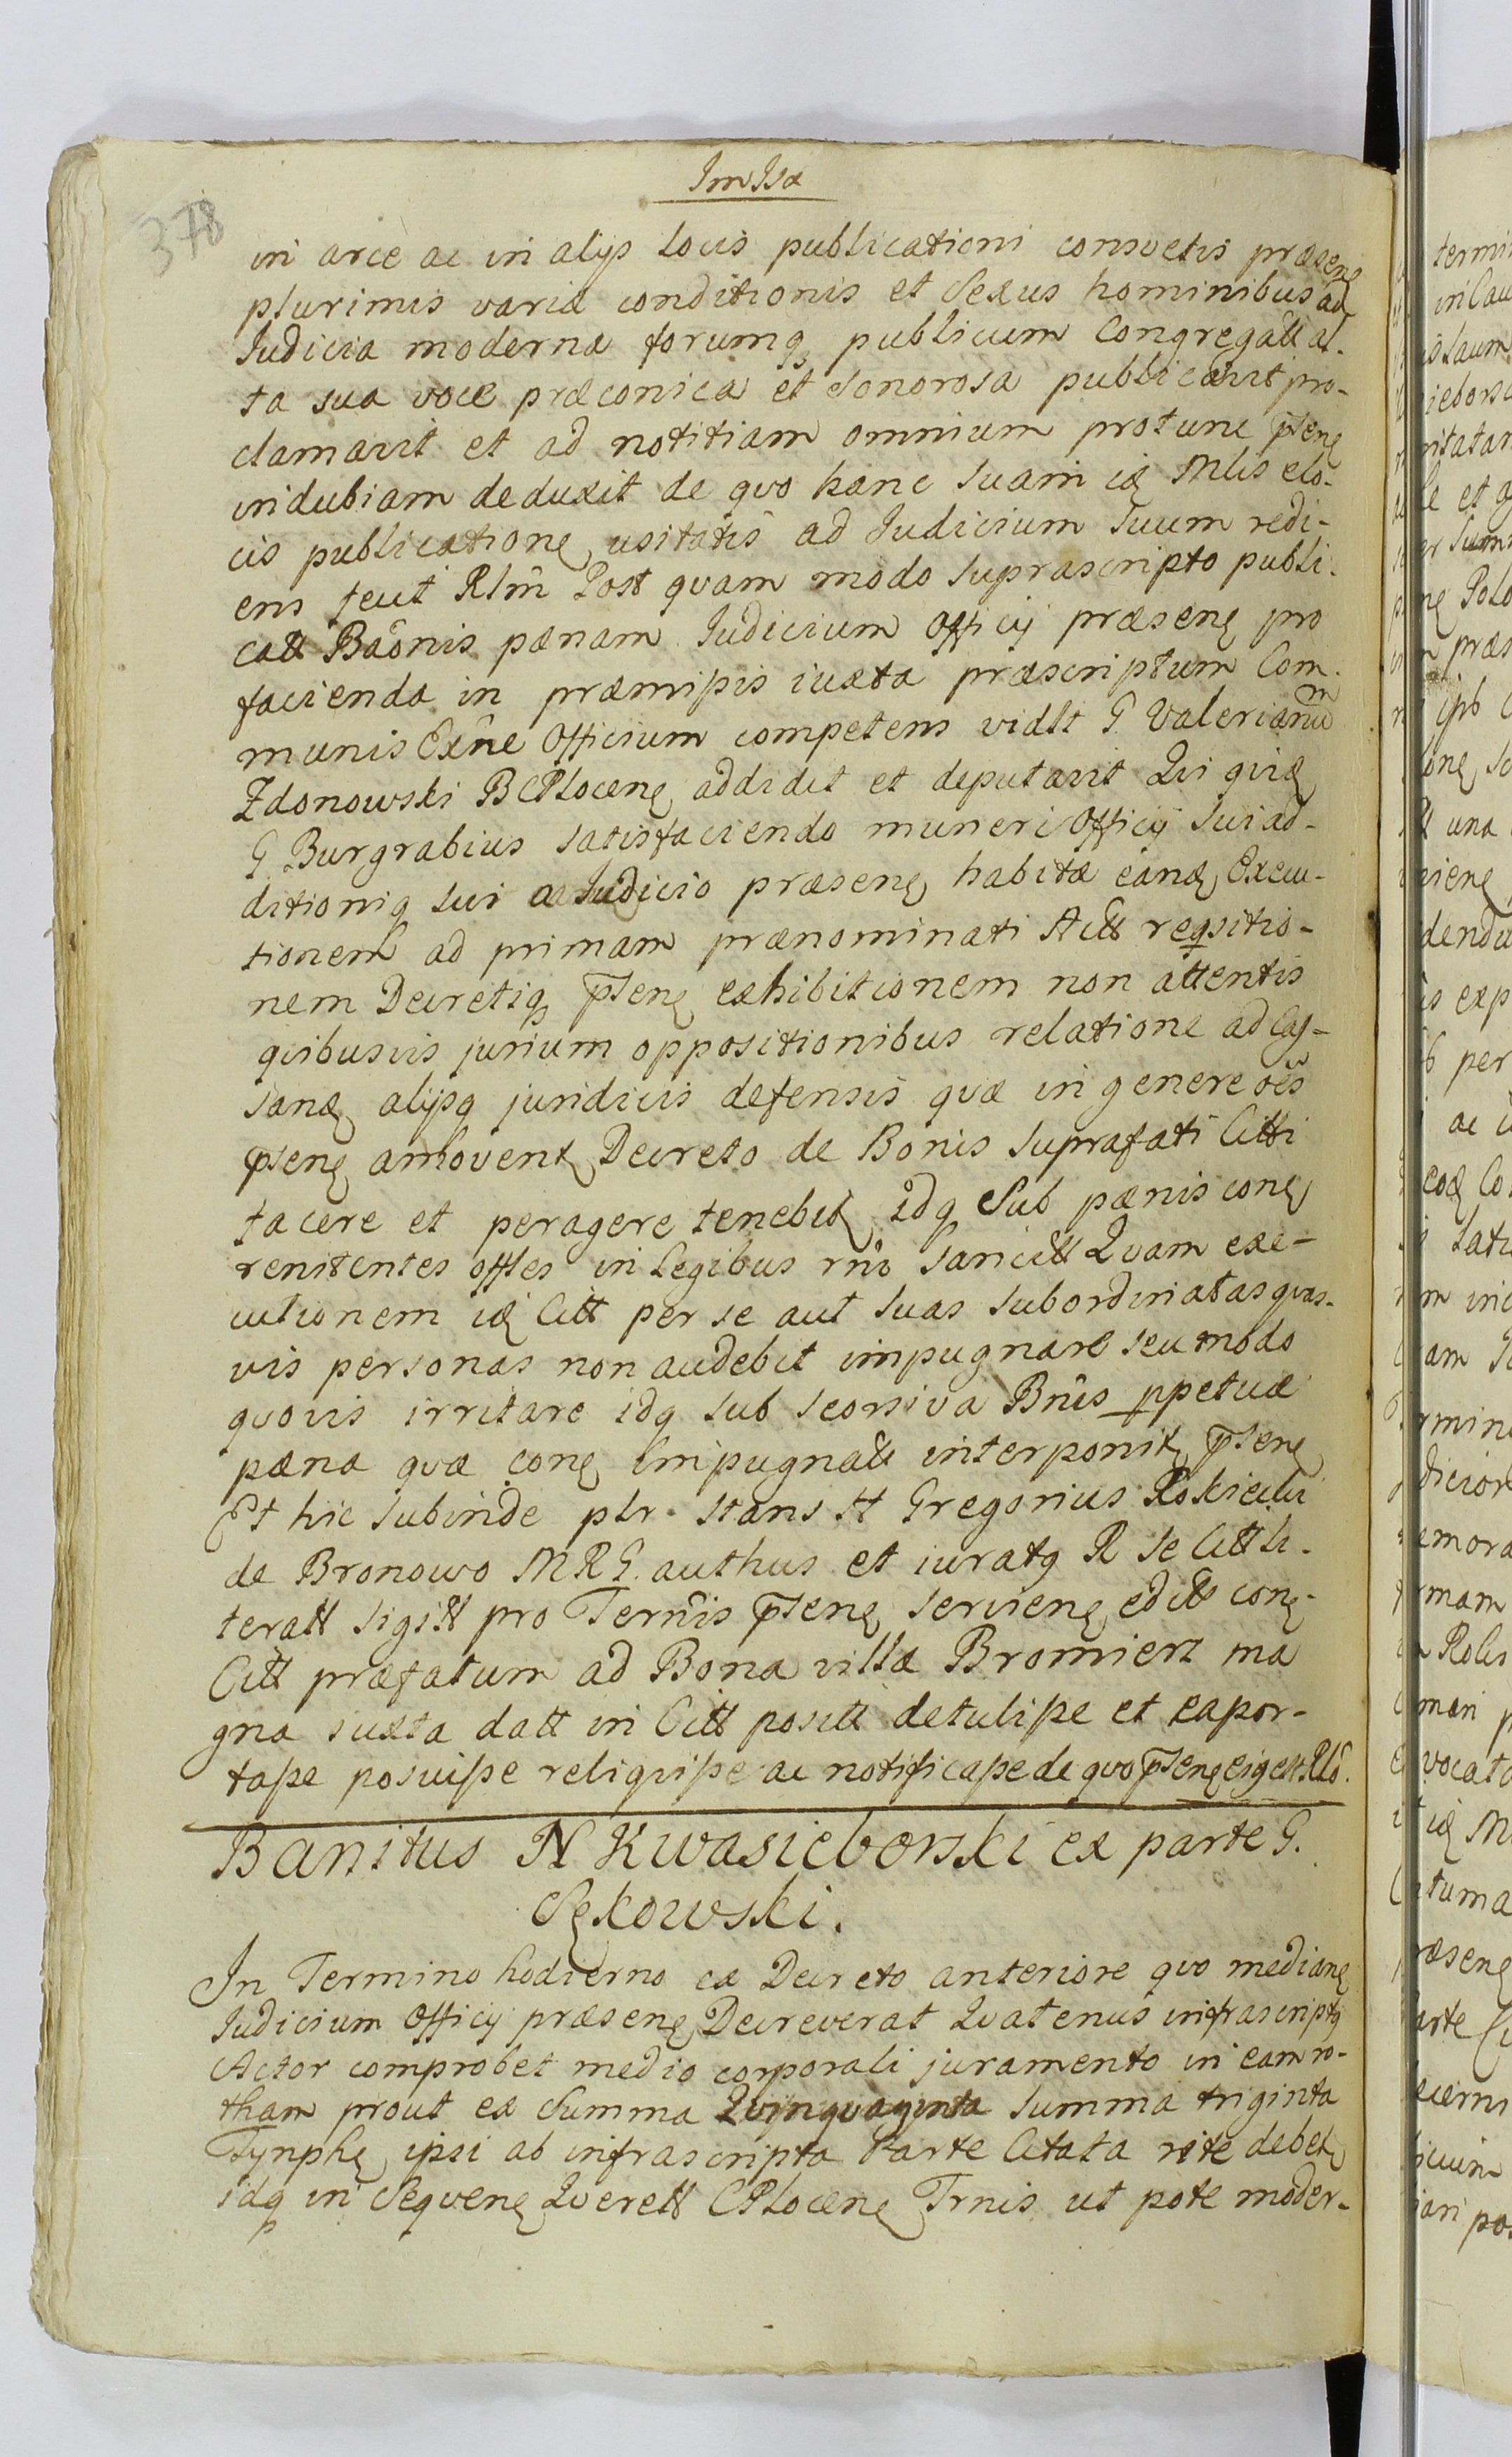 378
in arce ac in alijs Locis publicationi consvetis præsenę
plurimis variæ conditionis et Sexus hominibus ad
Iudicia moderna forumq publicum Congregatt al-
ta sua voce præconica et sonorosa publicavit pro-
clamavit et ad notitiam omnium protunc pſenę
indubiam deduxit de qvo hanc suam ię Mlis elo-
cis publicationę usitatis ad Iudicium suum redi-
ens fecit Rlm̂ Post qvam modo suprascripto publi-
catt Baônis pænam Iudicium Officij præsenę pro
facienda in præmiſsis iuxta præscriptum Com-
munis Exn̂e Officium competens vidlt G Valerianum
Zdonowski BCPlocenę addidit et deputavit Qvi qvię
G Burgrabius satisfaciendo muneri Officij sui ad-
ditioniq sui a Iudicio præsenę habitæ eanę Execu-
tionem ad primam prænominati Actt reqsitio-
nem Decretiq pſenę exhibitionem non attentis
qvibusvis jurium oppositionibus relatione ad Cas-
sanę alijsq juridicis defensis qvæ in genere oẽs
pſenę amoventę Decreto de Bonis suprafati Citti
facere et peragere tenebitę idq Sub pænis conę
renitentes offles in Legibus rn̂i sancitt Qvam exe-
cutionem ię Citt per se aut suas subordinatas qvas-
vis personas non audebit impugnare seu modo
qvovis irritare idq sub seorsiva Bn̂is ppetuæ
pæna qvæ conę impugnatt interponitę pſenę
Et hic subinde plr. stans H Gregorius Rościcki
de Bronowo MRG. authus et iuratq R se Citt li-
teratt sigitt pro Tern̂is pſenę servienę editt conę
Citt præfatum ad Bona villæ Bromierz ma
gna iuxta datt in Citt positt detuliſse et expor-
taſse posuiſse reliqviſse ac notificaſse de qvo pſenę eiq est Rlô.
Banitus N Kwasieborski ex parte G.
Sękowski.
In Termino hodierno ex Decreto anteriore qvo medianę
Iudicium Officij præsenę Decreverat Qvatenus infrascriptq
Actor comprobet medio corporali juramento in eam ro-
tham prout ex Summa Qvinqvaginta summa triginta
Tynphę ipsi ab infrascripta Parte Citata rite debetę
idq in Seqvenę Qverett CPlocenę Trnis ut pote moder-